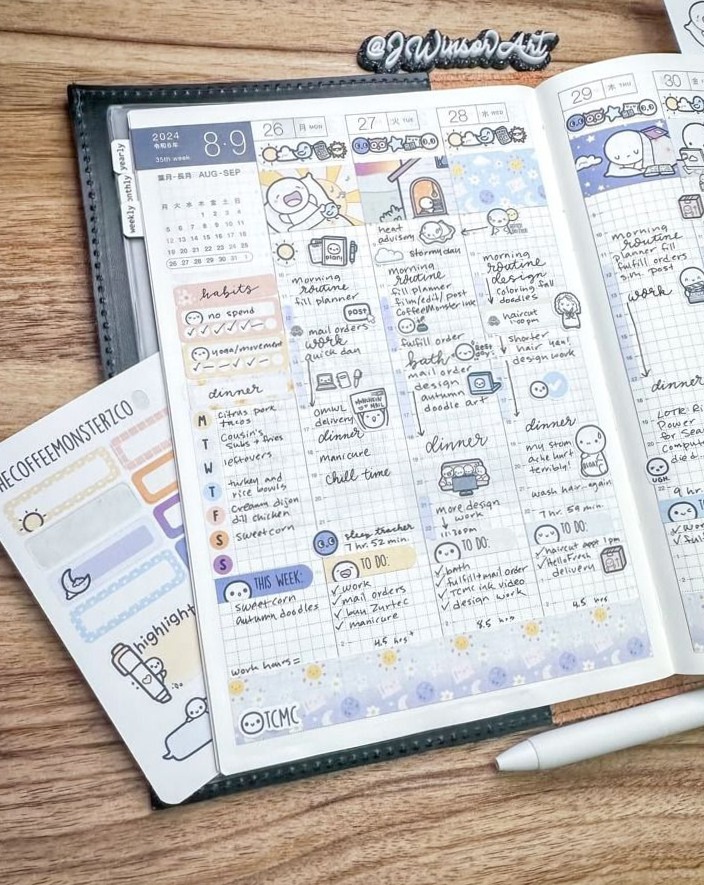 @JWinsorArt
2024
令和6年
8·9
35th week
葉月-長月 AUG-SEP
月 火 水 木 金 土 日
1 2 3 4
5 6 7 8 9 10 11
12 13 14 15 16 17 18
19 20 21 22 23 24 25
26 27 28 29 30 31 1
yearly
monthly
weekly
habits
no spend
yoga/movement
dinner
M citrus pork
tacos
T Cousin's
subs + fries
W leftovers
T turkey and
rice bowls
F creamy dijon
dill chicken
S sweetcorn
S
THIS WEEK:
sweetcorn
autumn doodles
work hours =
TCMC
26 月 MON
plan!
morning
routine
fill planner
POST
mail orders
work
quick dan
OMWL
delivery
MAIL
dinner
manicure
chill time
sleep tracker
7 hr. 52 min.
TO DO:
✓ work
✓ mail orders
✓ buy Zyrtec
✓ manicure
4.5 hrs
27 火 TUE
heat
advisory
stormy day
morning
routine
fill planner
film/edit/post
CoffeeMonster ink
fulfill order
bath
best
day!
mail order
design
autumn
doodle art
dinner
more design
work
11:30pm
TO DO:
✓ bath
✓ fulfill+mail order
✓ TCMC ink video
✓ design work
8.5 hrs
28 水 WED
morning
routine
design
coloring fall
doodles
haircut
1:00pm
shorter
hair yea!
design work
dinner
my stom
ache hurt
terribly!
wash hair again
TO DO:
✓ haircut appt 1pm
✓ HelloFresh
delivery
4.5 hrs
29 木 THU
morning
routine
planner fill
fulfill orders
s.m. post
work
dinner
LOTR: Ri
Power
for Sea
Comput
died...
UGH
9 hr.
TO
✓ wor
✓ ful
30 金
HECOFFEEMONSTERZCO
highlight